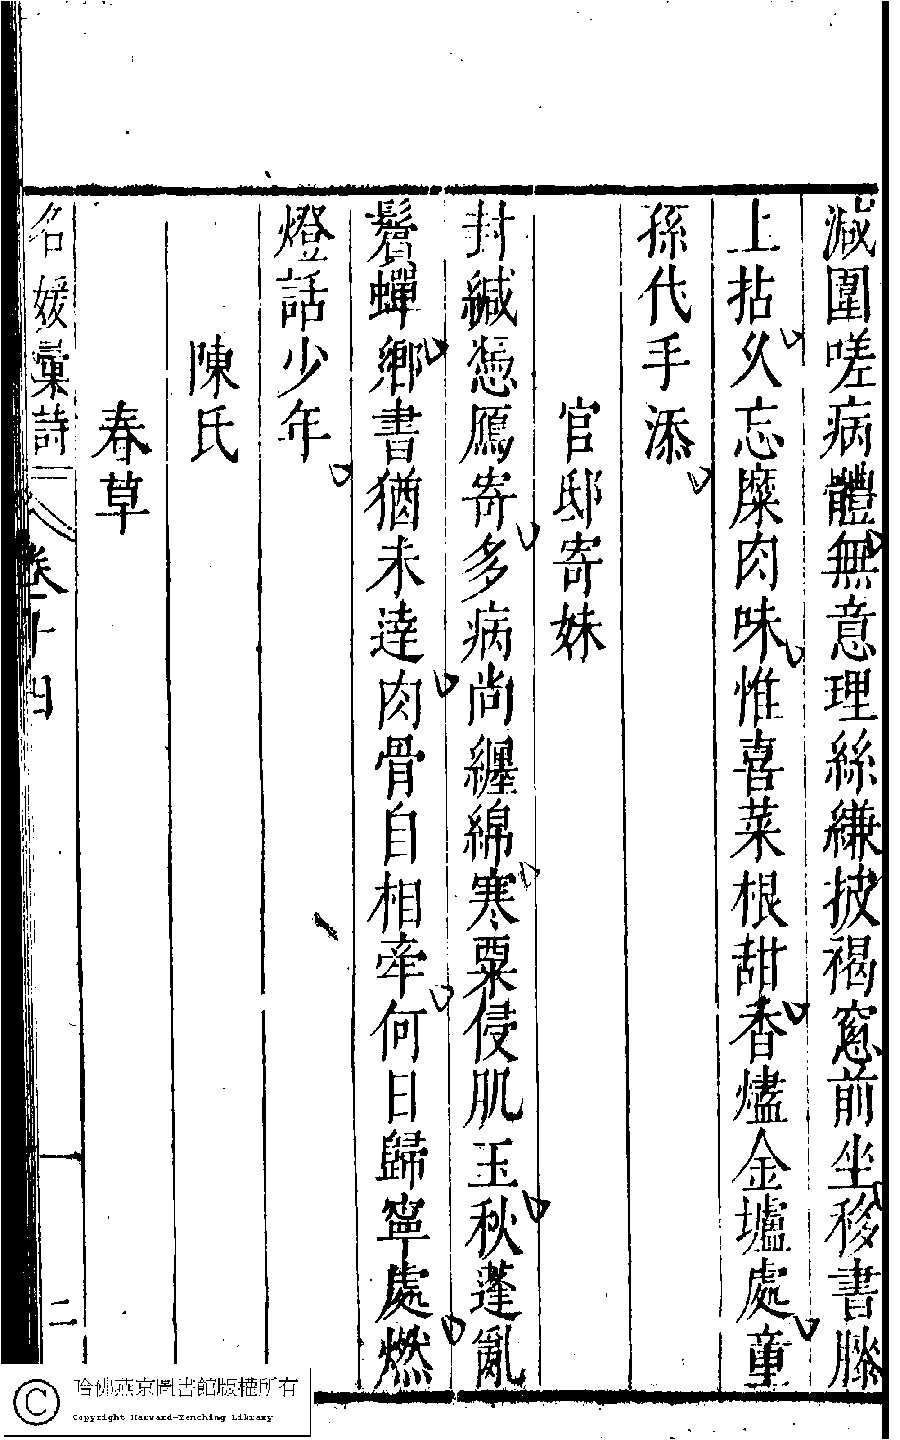 減圍嗟病體無意理絲縑披褐窻前坐移書膝
上拈久忘糜肉味惟喜菜根甜香燼金壚處童
孫代手添
官邸寄妹
封緘憑鴈寄多病尚纏綿寒粟侵肌玉秋蓬亂
鬢蟬鄉書猶未達肉骨自相牽何日歸寧處燃
燈話少年
陳氏
春草
名媛彙詩 卷十四 二
哈佛燕京圖書館版權所有
Copyright Harvard-Yenching Library